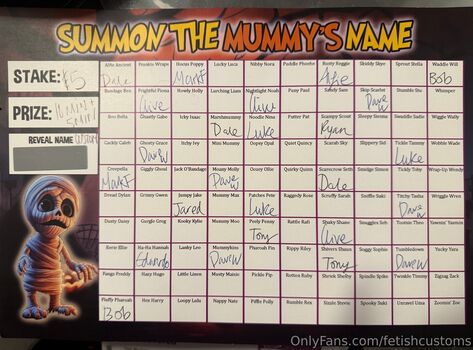 SUMMON THE MUMMY'S NAME
STAKE: £5
PRIZE:
REVEAL NAME
Alfie Ancient Hocus Poppy Lucky Luca Nibby Nora Puddle Phoebe Rusty Reggie Skiddy Skye Sprout Stella Waddle Will
Dale MarkF Bob
Bandage Ben Frightful Fiona Howly Holly Lurching Liam Sandy Sam Skip Scarlet Stumble Stu Whimper
Clive Clive Dave W
Boo Bella Ghastly Gabe Icky Isaac Marshmummy Noodle Nina Putter Pat Scampy Scout Sleepy Sienna Swaddle Sadie Wiggle Wally
Dale Luke Ryan
Cackly Caleb Ghosty Grace Itchy Ivy Mini Mummy Oopsy Opal Quiet Quincy Scarab Sky Slippery Sid Tickle Tommy Wobble Wade
Dave W Luke
Creepella Giggly Ghoul Jack O'Bandage Moany Molly Ooozy Ollie Quirky Quinn Scarecrow Seth Smudge Simon Tickly Toby Wrap-up Wendy
MarkF Dave W Dale
Dread Dylan Grimey Gwen Jumpy Jake Mummy Max Patches Pete Raggedy Rose Scruffy Sarah Sniffle Suki Tatchy Tasha Wriggle Wren
Jared Luke Dave W
Dusty Daisy Gurgle Greg Kooky Kylie Mummy Moo Peely Penny Rattle Rafi Shaky Shane Snuggles Seb Tootsie Toot Yawnin' Yasmin
Tony Clive
Eerie Ellie Ha-Ha Hannah Lanky Leo Mummykins Pharaoh Fin Rippy Riley Shivers Shaun Soggy Sophie Tumbledown Yucky Yara
Eduardo Dave W Tony Dave W
Fango Freddy Hazy Hugo Little Linen Musty Maisie Pickle Pip Rotten Ruby Shriek Shelby Spindle Spike Twinkle Timmy Zigzag Zack
Fluffy Pharaoh Hex Harry Loopy Lulu Nappy Nate Piffle Polly Rumble Rex Sizzle Stevie Spooky Suki Unravel Uma Zoomin' Zoe
Bob
OnlyFans.com/fetishcustoms